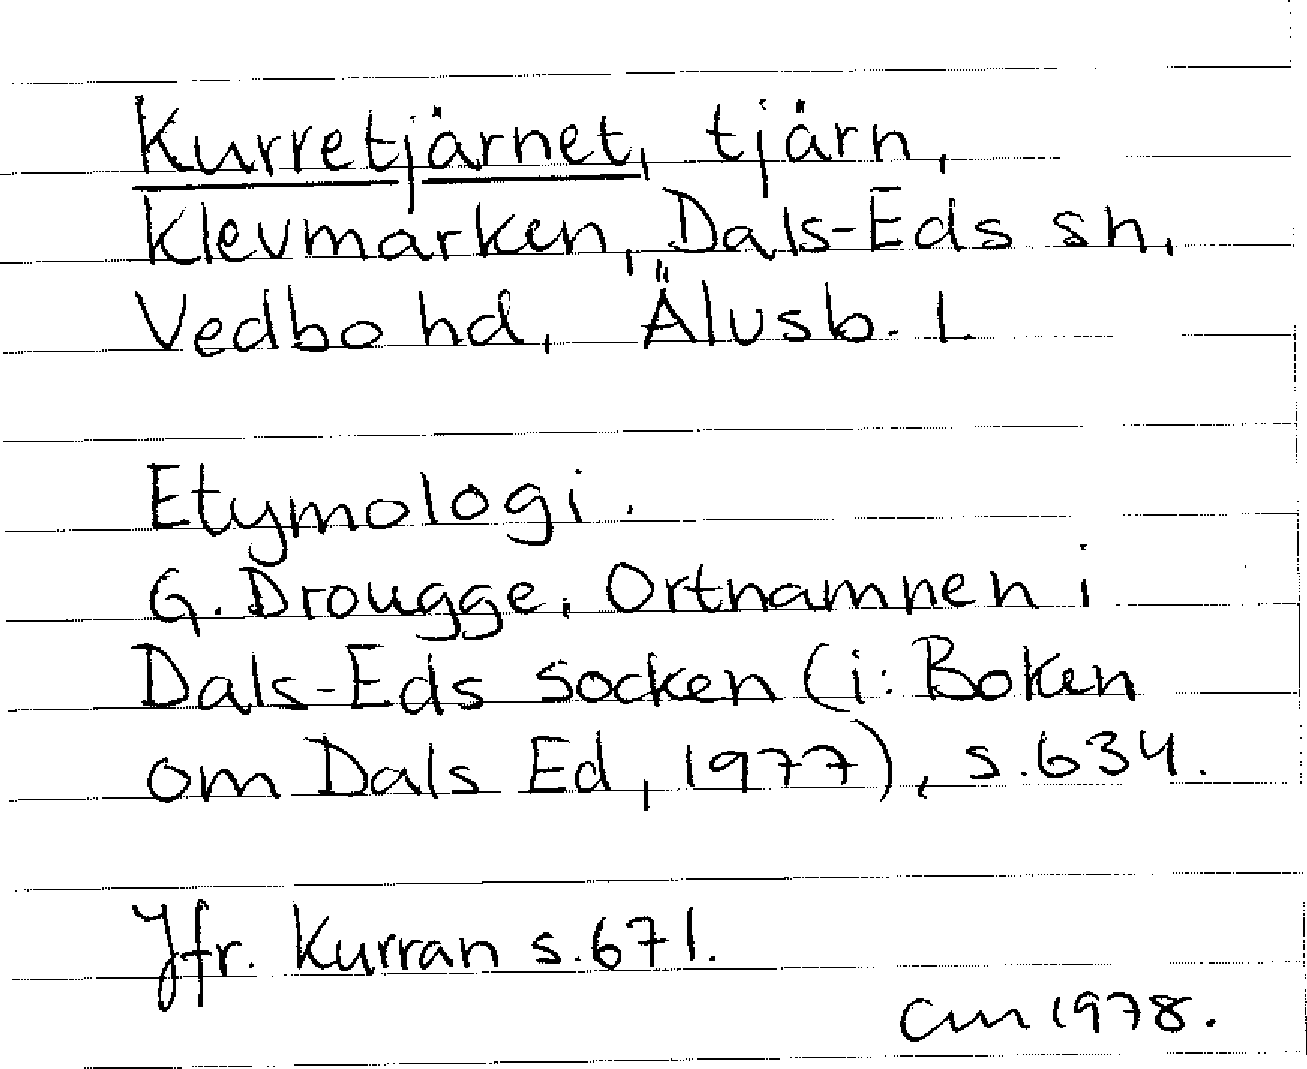 Kurretjärnet, tjärn,
Klevmarken, Dals-Eds sn,
Vedbo hd, Älvsb. L
Etymologi.
G. Drougge, Ortnamnen i
Dals-Eds socken (i: Boken
om Dals Ed, 1977), s. 634.
Jfr. Kurran s. 671.
Cm 1978.